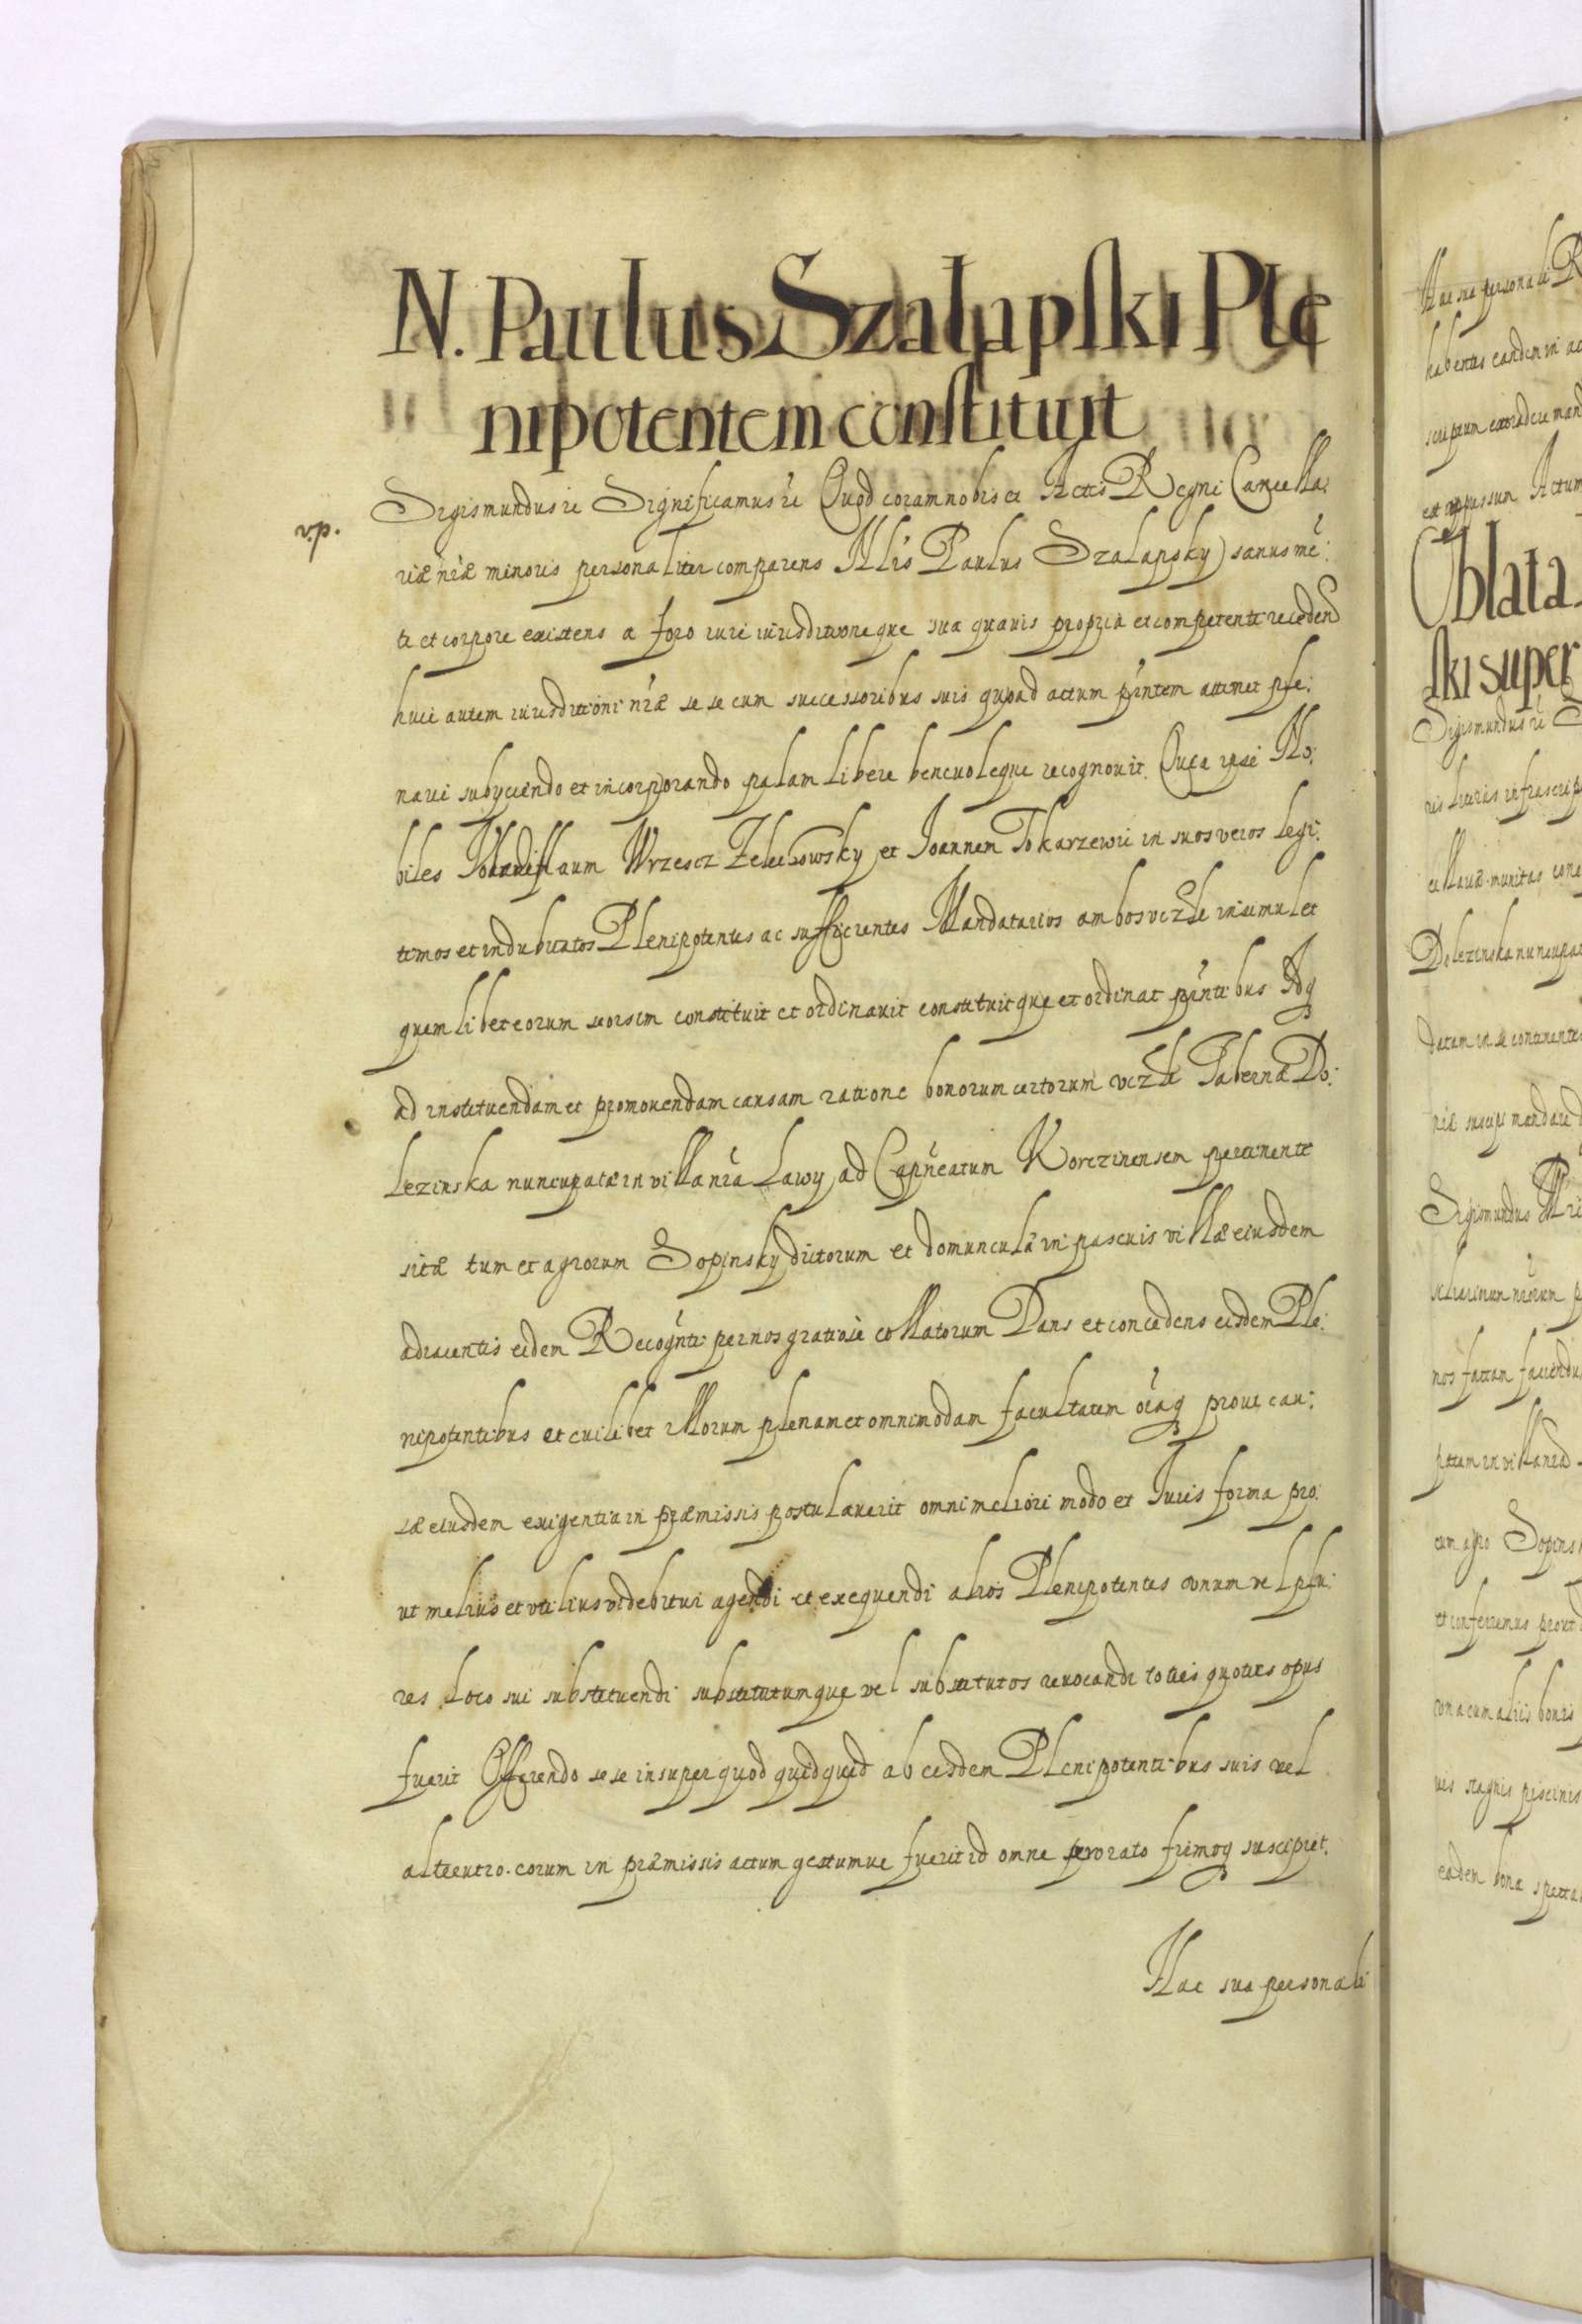 N. Paulus Szalapski Ple
nipotentem constituit
v.p.
Sigismundus ic Significamus ic Quod coram nobis et Actis Regni Cancella:
riæ nr̃æ minoris personaliter comparens Nlis Paulus Szalapsky sanus mẽ:
te et corpore existens a foro iure iurisdictioneque sua quavis propria et competenti recedend
huic autem iurisdictioni nr̃æ se se cum successoribus suis quoad actum pn̄tem attinet ple:
narie subyciendo et incorporando palam libere benevoleque recognovit Quia ipse No:
biles Wladislaum Wrzescz Zelechowsky et Ioannem Tokarzewic in suos veros legi:
timos et indubitatos Plenipotentes ac sufficientes Mandatarios ambos vczle insimul et
quemlibet eorum seorsim constituit et ordinavit constituitque et ordinat pn̄tibus Idq
ad instituendam et promovendam causam ratione bonorum certorum vczle Tabernæ Do:
lezinska nuncupatæ in villa nr̃a Lawy ad Capn̄eatum Korczinensem pertinente
sitæ tum et agrorum Sopinsky dictorum et domunculæ in pascuis villæ eiusdem
adiacentis eidem Recogn̄ti per nos gratiose collatorum Dans et concedens eisdem Ple:
nipotentibus et cuilibet illorum plenam et omnimodam facultatem oiaq prout cau:
sæ eiusdem exigentia in præmissis postulaverit omni meliori modo et Iuris forma pro:
ut melius et utilius videbitur agendi et exequendi alios Plenipotentes vnum vel plu:
res loco sui substituendi substitutumque vel substitutos revocandi toties quoties opus
fuerit Offerendo se se insuper quod quidquid ab eisdem Plenipotentibus suis vel
alterutro eorum in præmissis actum gestumve fuerit id omne pro rato firmoq suscipiet.
Hac sua personali
Hac sua personali R
habentes eandem in ac
scriptum extradere mand
est appassum Actum
Oblata
ski super
Sigismundus ic S
ris literis infrascrip
cellariæ munitas con
Dolezinska nuncupat
datam in se continentes
nr̃æ suscipi mandared
Sigismundus
nos factam faciendu
patam in villa nr̃a
cum agro Sopins
et conferremus prout
vna cum aliis bonis
uis stagnis piscinis
eadem bona specta